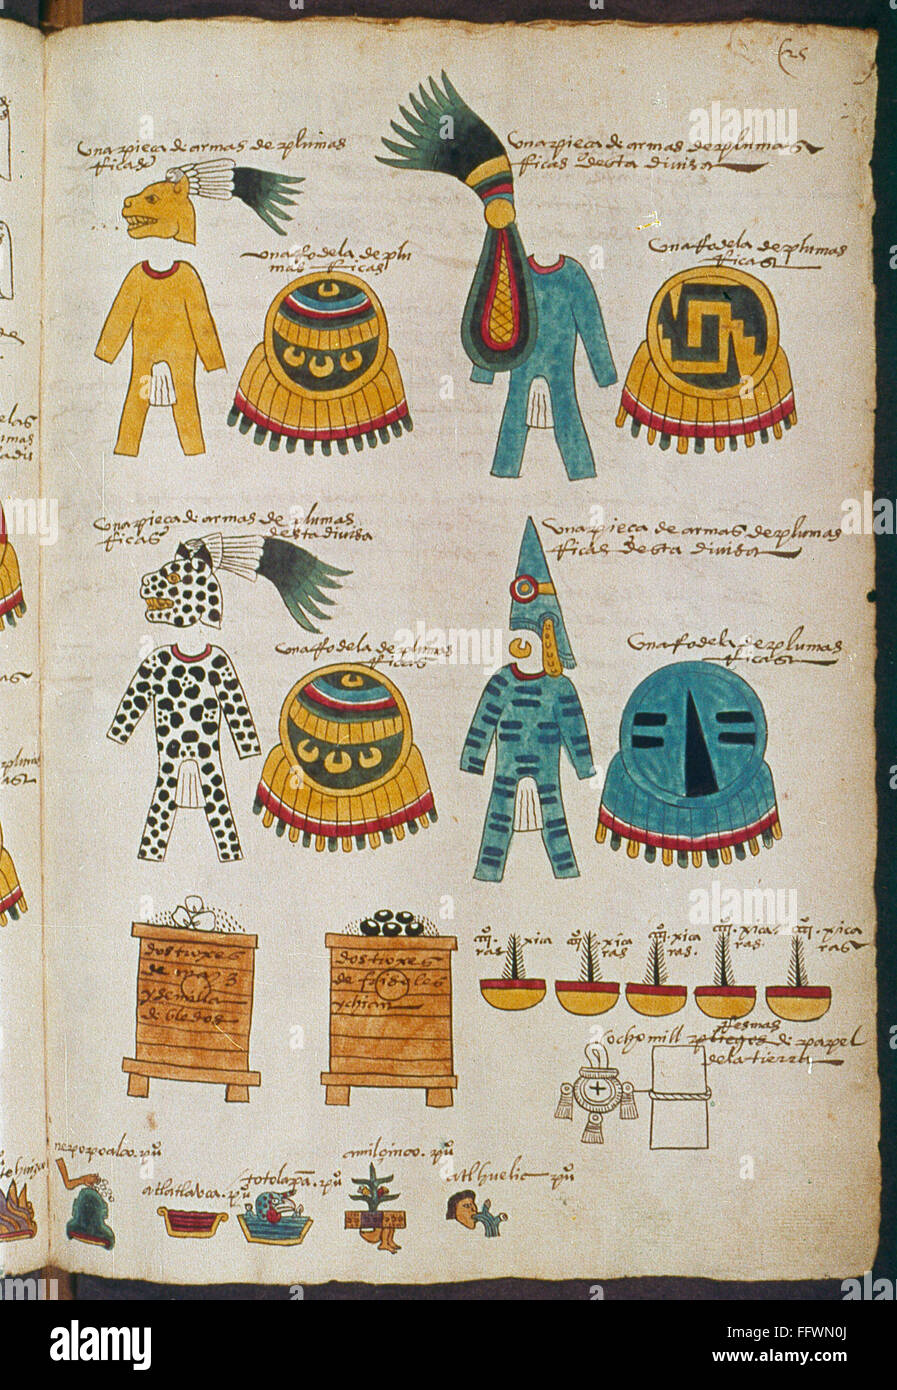 25
una pieca de armas de plumas
rricas
una pieca de armas de plumas
rricas desta divisa
una rrodela de plu
mas rricas
una rrodela de plumas
rricas
una pieca de armas de plumas
rricas desta divisa
una pieca de armas de plumas
rricas desta divisa
una rrodela de plumas
rricas
una rrodela de plumas
rricas
dos troxes
de maiz
y semilla
de bledos
dos troxes
de frisoles
y chian
xica
ras
xica
ras
xica
ras
xica
ras
xica
ras
ocho mill rresmas
pliegos de papel
de la tierra
nepopoalco. puo
atlatlavca. puo
totolapa. puo
amilçinco. puo
atlhuelic puo
alamy
Image ID: FFWN0J
www.alamy.com